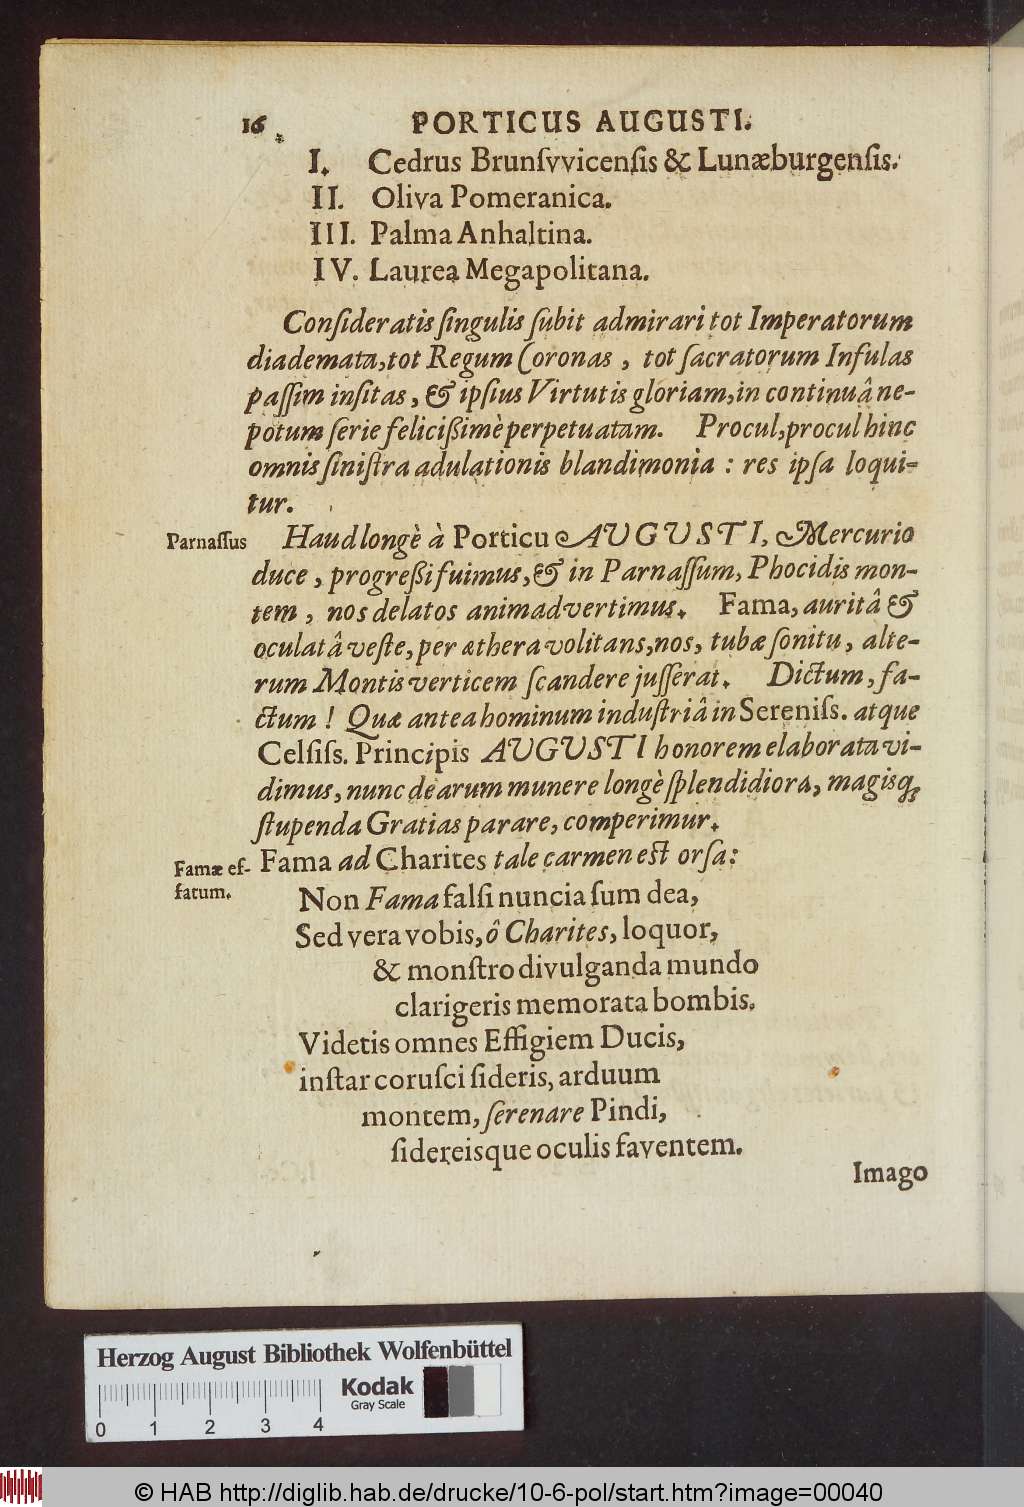 16 PORTICUS AUGUSTI.
I. Cedrus Brunſvvicenſis & Lunæburgenſis.
II. Oliva Pomeranica.
III. Palma Anhaltina.
IV. Laurea Megapolitana.
Conſideratis ſingulis ſubit admirari tot Imperatorum
diademata, tot Regum Coronas, tot ſacratorum Infulas
paſſim inſitas, & ipſius Virtutis gloriam, in continuâ ne-
potum ſerie feliciſſimè perpetuatam. Procul, procul hinc
omnis ſiniſtra adulationis blandimonia : res ipſa loqui-
tur.
Parnaſſus
Haud longè à Porticu AUGUSTI, Mercurio
duce, progreßi fuimus, & in Parnaſſum, Phocidis mon-
tem, nos delatos animadvertimus. Fama, auritâ &
oculatâ veſte, per æthera volitans, nos, tubæ ſonitu, alte-
rum Montis verticem ſcandere juſſerat. Dictum, fa-
ctum ! Quæ antea hominum induſtriâ in Sereniſs. atque
Celſiſs. Principis AUGUSTI honorem elaborata vi-
dimus, nunc dearum munere longè ſplendidiora, magisq́;
ſtupenda Gratias parare, comperimur.
Famæ ef-
fatum.
Fama ad Charites tale carmen eſt orſa:
Non Fama falſi nuncia ſum dea,
Sed vera vobis, ô Charites, loquor,
& monſtro divulganda mundo
clarigeris memorata bombis.
Videtis omnes Effigiem Ducis,
inſtar coruſci ſideris, arduum
montem, ſerenare Pindi,
ſidereisque oculis faventem.
Imago
Herzog August Bibliothek Wolfenbüttel
Kodak
Gray Scale
0 1 2 3 4
© HAB http://diglib.hab.de/drucke/10-6-pol/start.htm?image=00040